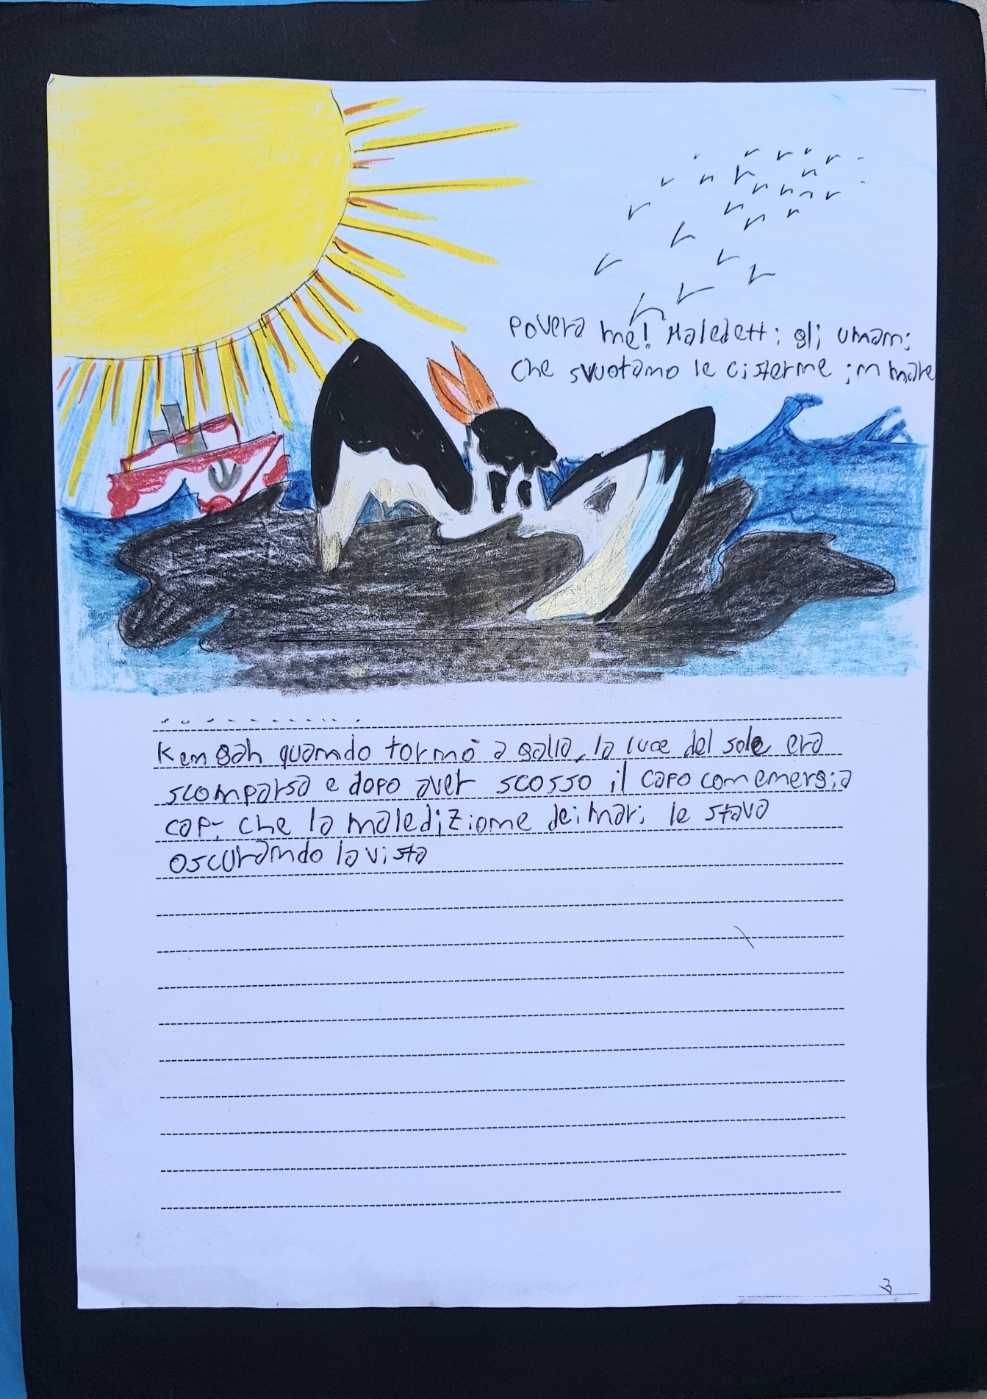 Povera me! Maledetti gli umani
che svuotano le cisterne in mare
Kengah quando tornò a galla, la luce del sole era
scomparsa e dopo aver scosso il capo con energia
capì che la maledizione dei mari le stava
oscurando la vista
3